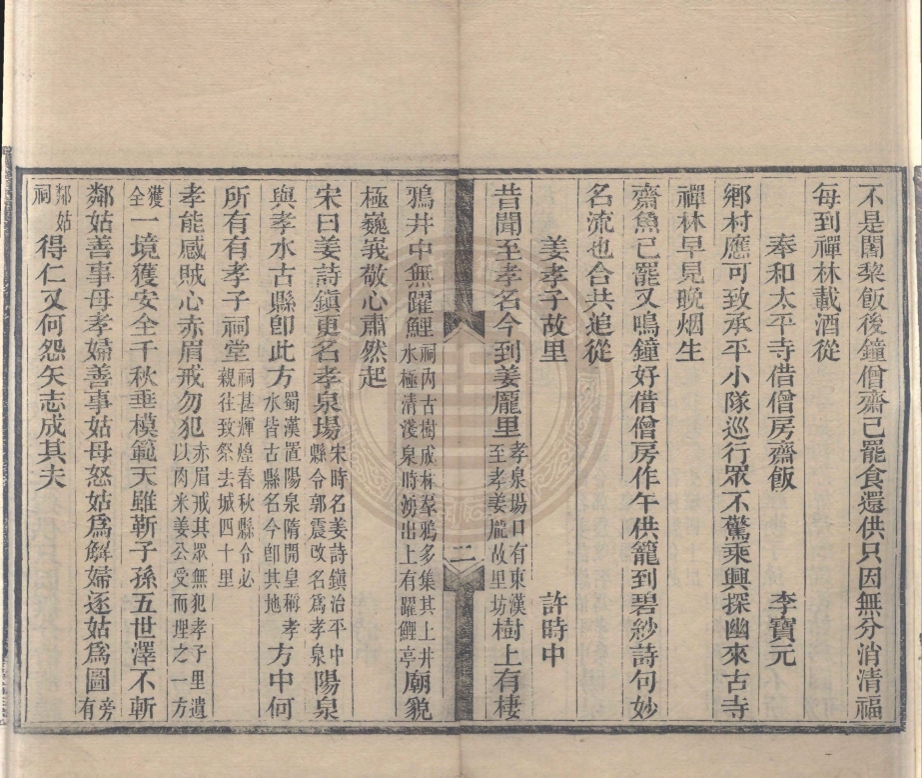 不是闍黎飯後鐘僧齋已罷食還供只因無分消清福
每到禪林載酒從
奉和太平寺借僧房齋飯 李寶元
鄉村應可致承平小隊巡行眾不驚乘興探幽來古寺
禪林早見晚烟生
齋魚已罷又鳴鐘好借僧房作午供籠到碧紗詩句妙
名流也合共追從
姜孝子故里 許時中
昔聞至孝名今到姜龐里孝泉場口有東漢至孝姜龐故里坊樹上有棲
二
鴉井中無躍鯉祠內古樹成林翠鴉多集其上井水極清淺泉時湧出上有躍鯉亭廟貌
極巍峩敬心肅然起
宋曰姜詩鎮更名孝泉場宋時名姜詩鎮治平中縣令郭震改名為孝泉陽泉
與孝水古縣卽此方蜀漢置陽泉隋開皇稱孝水皆古縣名今卽其地方中何
所有有孝子祠堂祠甚輝煌春秋縣令必親往致祭去城四十里
孝能感賊心赤眉戒勿犯赤眉戒其眾無犯孝子里遺以肉米姜公受而埋之一方
獲全一境獲安全千秋垂模範天雖斬子孫五世澤不斬
鄰姑善事母孝婦善事姑母怒姑為解婦逐姑為圖旁有
鄰姑祠得仁又何怨矢志成其夫